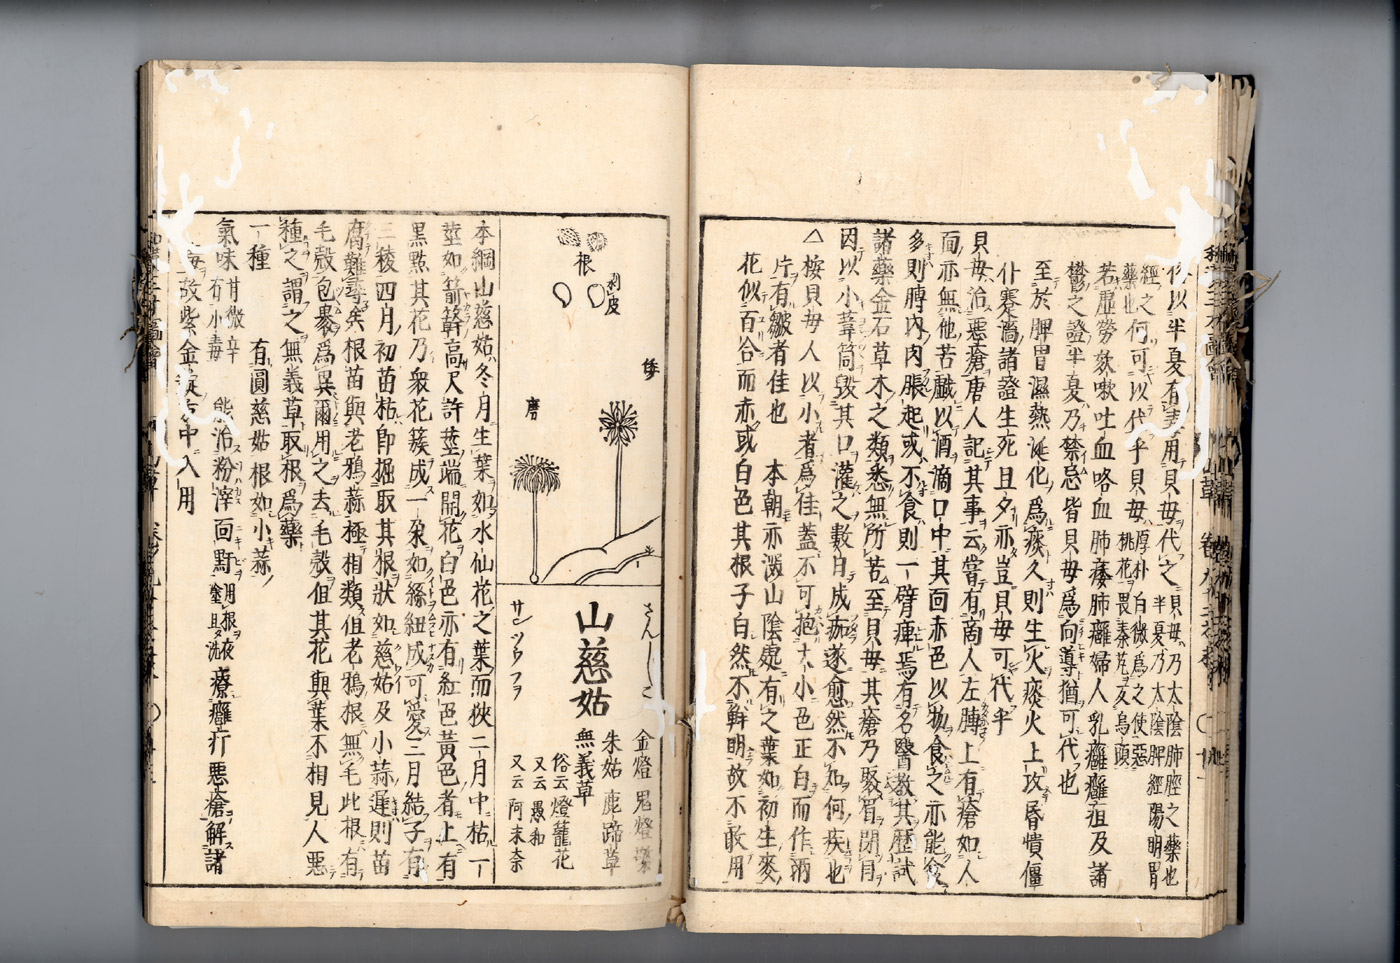 俗以半夏有毒用貝毋代之貝毋乃太陰肺經之藥也
半夏乃太陰脾經陽明胃
經之
藥也何可以代乎貝毋
厚朴白微為之使惡
桃花畏秦艽及烏頭
若虛勞欬嗽吐血咯血肺痿肺癰婦人乳癰癰疽及諸
鬱之證半夏乃禁忌皆貝毋爲向導猶可代也
至於脾胃濕熱涎化爲痰久則生火痰火上攻昏憒僵
仆蹇澁諸證生死且夕亦豈貝毋可代乎
貝毋治惡瘡唐人記其事云嘗有商人左膊上有瘡如人
面亦無他苦戲以酒滴口中其面赤色以物食之亦能食
多則膊内肉脹起或不食則一臂痺焉有名醫敎其歷試
諸藥金石草木之類悉無所苦至貝毋其瘡乃聚眉閉目
因以小葦筒毀其口灌之數日成痂遂愈然不知何疾也
△桉貝毋人以小者爲佳葢不可抱十小色正白而作兩
片有皺者佳也　本朝亦濕山陰處有之葉如初生麥
花似百合而赤或白色其根子白然不鮮明故不敢用
根
剥皮
倭
唐
さんしこ
山慈姑
サンツウフヲ
金燈 鬼燈檠
朱姑 鹿蹄草
無義草
俗云燈籠花
又云愚和
又云阿末奈
本綱山慈姑冬月生葉如水仙花之葉而狹二月中枯一
莖如箭簳高尺許莖端開花白色亦有紅色黃色者上有
黒㸃其花乃衆花簇成一朶如絲紐成可愛三月結子有
三稜四月初苗枯即掘取其根狀如慈姑及小蒜遲則苗
腐難尋矣根苗與老鴉蒜極相類但老鴉根無毛此根有
毛殻包裹爲異爾用之去毛殻但其花與葉不相見人惡
種之謂之無義草取根爲藥
一種　有圓慈姑根如小蒜
氣味
甘微辛
有小毒
能治粉滓面䵟
用根夜
塗旦洗
療癰疔惡瘡解諸
毒故紫金錠方中入用